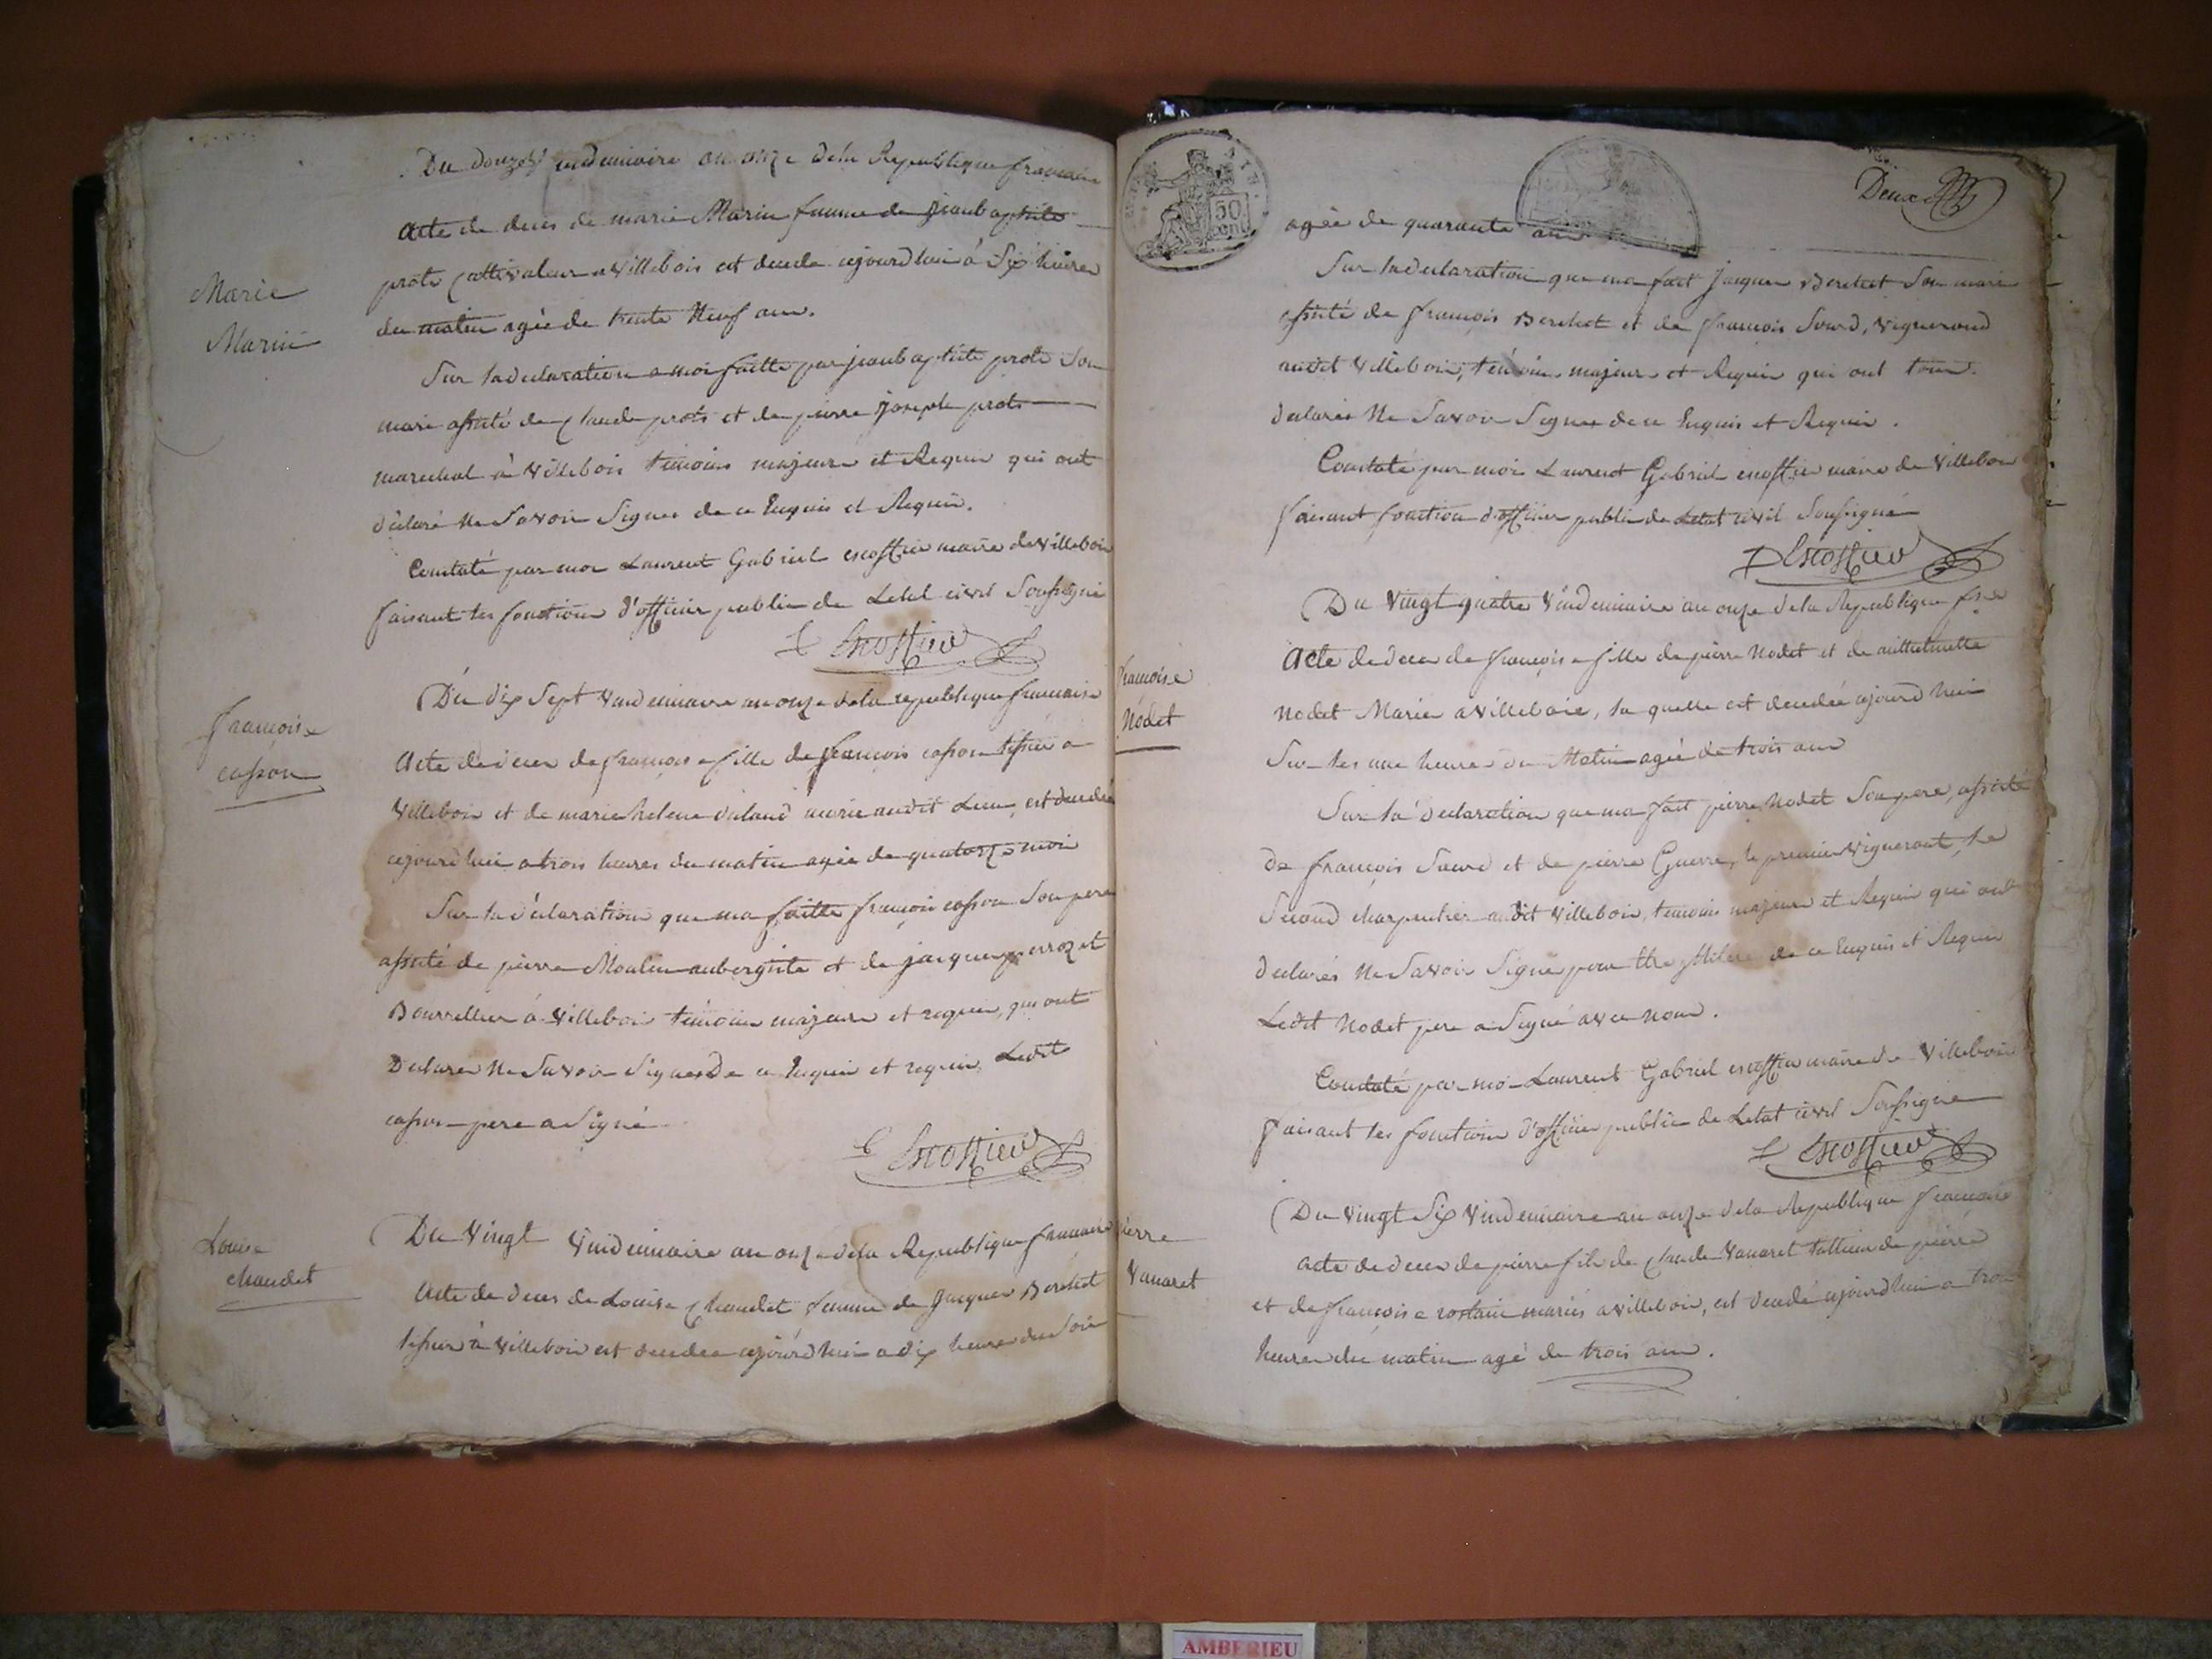 Du douze vendemiaire an onze dela Republique francaise
Marie
Marin
Acte de deces de marie Marin femme de jeanbaptiste
prots cultivateur a Villebois est decede ajourdhui à Six heures
du matin agée de trente Neuf ans.
Sur la declaration a moi faitte par jeanbaptiste prots Son
mari assisté de Claude prots et de pierre joseph prots
marechal à Villebois temoins majeurs et Requis qui ont
déclaré Ne Savoir Signer de ce Enquis et Requis.
Constaté par moi Laurent Gabriel escoffier maire de Villebois
faisant les fonctions d'officier public de Letat civil Soussigné
L Escoffier
françoise
casson
Du dix Sept Vandemiaire an onze dela republique francaise
Acte de deces de françoise fille de françois casson tissier a
Villebois et de marie helene marié audit Lieu, est decedée
ajourdhui a trois heures du matin agée de quatorze mois
Sur la déclaration que ma faitte françois casson Son pere
assisté de pierre Moulin aubergiste et de jacques perrozet
Bourrellier à Villebois témoins majeurs et requis, qui ont
Declarer Ne Savoir Signer De ce Enquis et requis, Ledit
casson pere a Signé
L Escoffier
Louise
chaudet
Du Vingt Vindemiaire an onze dela Republique francaise
Acte de deces de Louise Chaudet femme de Jacques Berchet
tissier à Villebois est decedee ajourd'hui a dix heures du Soir
50
cent
Deux
agée de quarante ans.
Sur la declaration que ma fait Jacques Berchet Son mari
assisté de françois Berchet et de françois Sourd, Vignerond
audit Villebois, témoins majeurs et Requis qui ont tous
declarés Ne Savoir Signer de ce Enquis et Requis.
Constaté par moi Laurent Gabriel escoffier maire de Villebois
faisant fonction d'officier public de Letat civil Soussigné
L Escoffier
françoise
Nodet
Du Vingt quatre Vindemiaire an onze dela Republique fse
Acte de deces de françoise fille de pierre Nodet et de
Nodet Mariés a Villebois, la quelle est decedée ajourd'hui
Sur les une heures du Matin agée de trois ans
Sur la declaration que ma fait pierre Nodet Son pere, assisté
de françois Sourd et de pierre Guerre, le premier Vigneront, le
Second charpentier audit Villebois, temoins majeurs et Requis qui ont
declarés Ne Savoir Signé pour de ce Enquis et Requis
Ledit Nodet pere a Signé avec nous.
Constaté par moi Laurent Gabriel escoffier maire de Villebois
faisant les fonctions d'officier public de Letat civil Soussigné
L Escoffier
pierre
Vanaret
Du Vingt Six Vindemiaire an onze dela Republique francaise
acte de deces de pierre fils de Claude Vanaret tallieur de pierre
et de françoise rostain mariés a Villebois, est decedé ajourdhui a trois
heures du matin agé de trois ans.
AMBERIEU